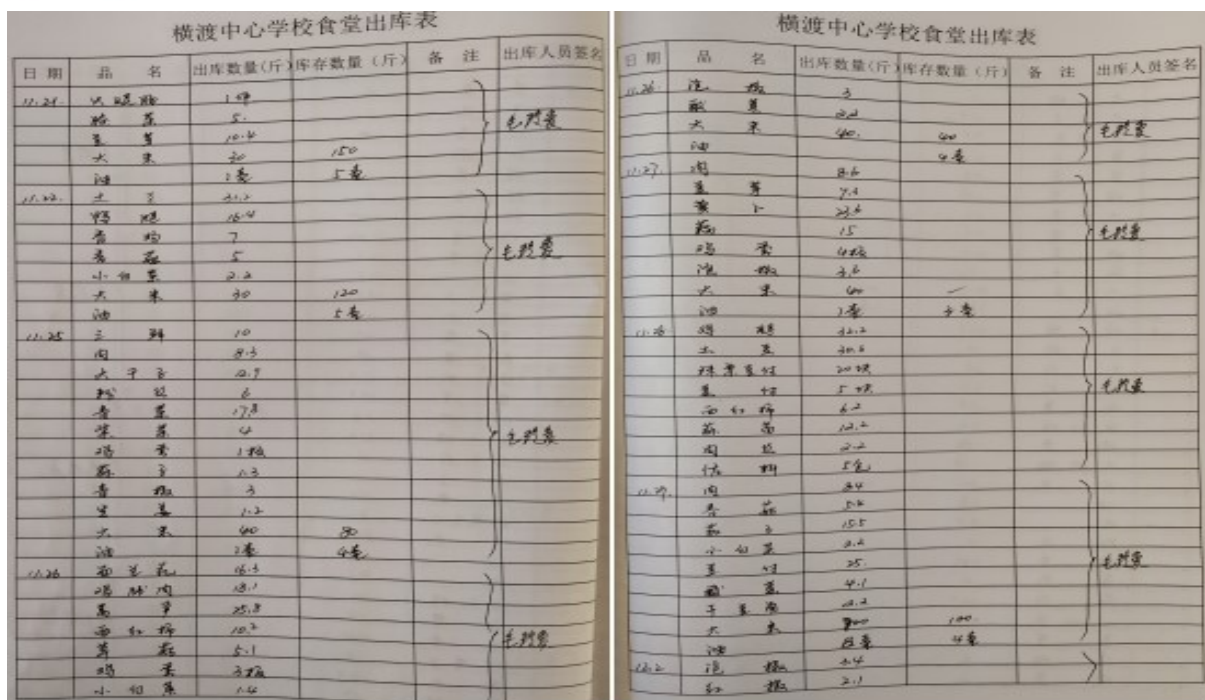 横渡中心学校食堂出库表
日期 品名 出库数量(斤) 库存数量(斤) 备注 出库人员签名
11.21. 火腿肠 1件
5.
10.4
大米 30 150
油 1壶 5壶
11.22. 土豆 31.2
鸭腿 16.4
香肠 7
香菇 5
小白菜 2.2
大米 30 120
油 5壶
11.25 三鲜 10
肉 8.3
大干子 12.9
粉丝 6
青菜 17.8
紫菜 4
鸡蛋 1板
蒜子 1.3
青椒 3
生姜 1.2
大米 40 80
油 1壶 4壶
11.26 西兰花 16.3
鸡脯肉 18.1
莴笋 25.8
西红柿 10.2
草菇 5.1
鸡蛋 3板
小白菜 1.4
横渡中心学校食堂出库表
日期 品名 出库数量(斤) 库存数量(斤) 备注 出库人员签名
11.26. 泡椒 3
酸菜 2.2
大米 40. 40
油 4壶
11.27. 肉 8.6
豆芽 7.4
萝卜 23.6
15
鸡蛋 4板
泡椒 3.6
大米 40 —
油 1壶 3壶
11.28 鸡腿 32.2
土豆 30.6
20块
豆付 5块
西红柿 6.2
12.2
肉丝 2.2
佐料 5包
11.29. 肉 8.4
香菇 5.8
茄子 15.5
小白菜 2.2
豆付 25.
4.1
2.2
大米 100
油 4壶
12.2 泡椒 3.4
红椒 2.1